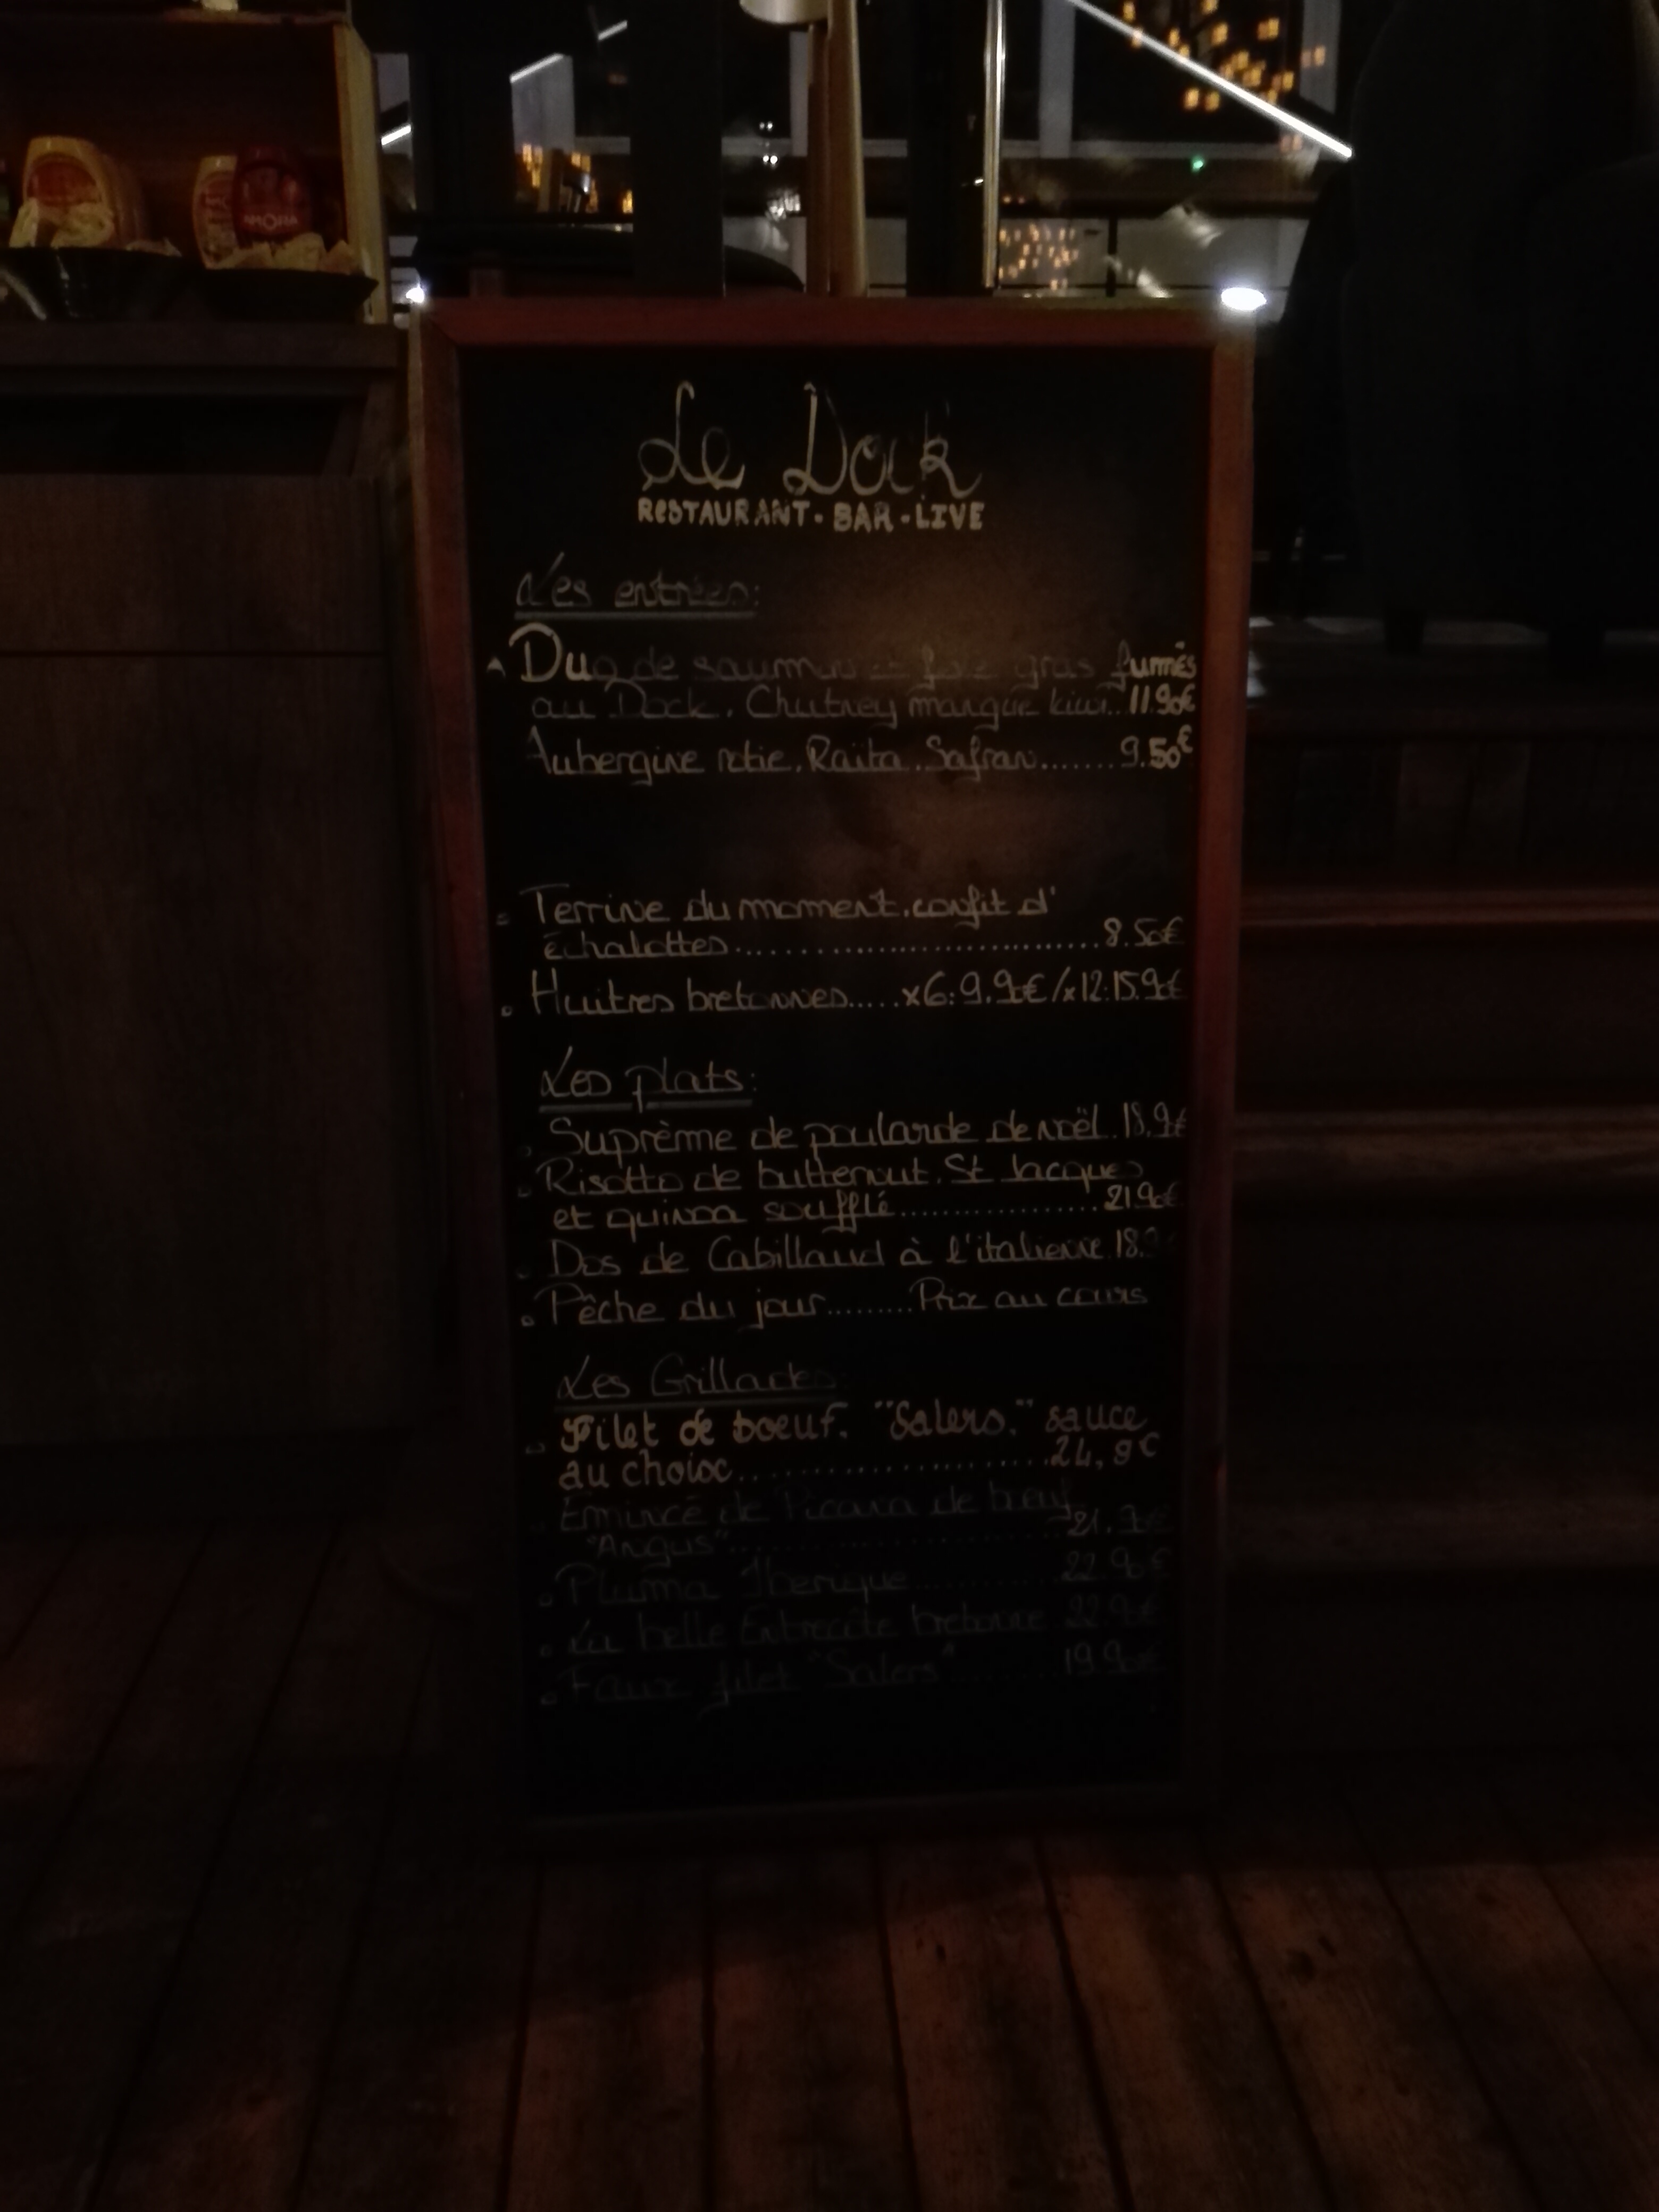 Le Dock
RESTAURANT · BAR · LIVE
Les entrées:
Duo de saumon et foie gras fumés
au Dock, Chutney mangue kiwi..11.90€
Aubergine rotie, Raita, Safran.......9.50€
Terrine du moment, confit d'
échalottes....................................8.50€
Huitres bretonnes.....x6:9.9€/x12:15.9€
Les plats:
Suprème de poularde de noël.18.9€
Risotto de butternut, St Jacques
et quinoa soufflé...................21.90€
Dos de Cabillaud à l'italienne.18.9
Pêche du jour.........Prix au cours
Les Grillades:
Filet de boeuf. "Salers." sauce
au choix.........................24,9€
Emincé de Picana de boeuf
"Angus"...........................21.9€
Pluma Iberique...............22.90€
La belle Entrecôte bretonne 22.9€
Faux filet "Salers".........19.90€
AMORA